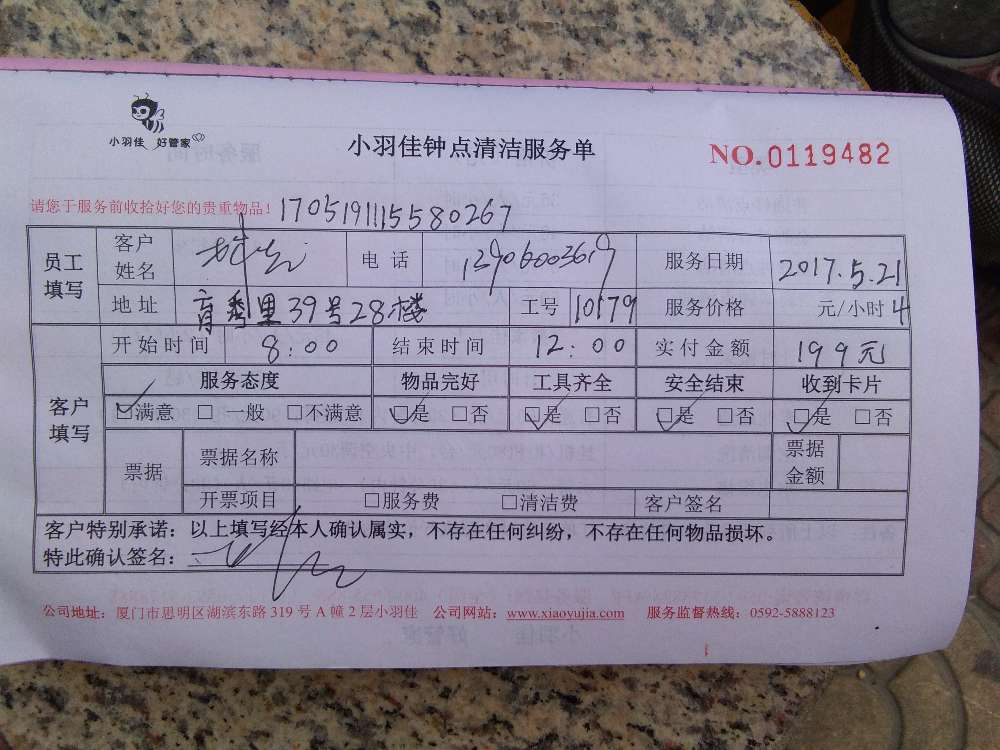 小羽佳 好管家
小羽佳钟点清洁服务单
NO.0119482
请您于服务前收拾好您的贵重物品！ 1705191115580267
员工填写 客户姓名 电话 13906003619 服务日期 2017.5.21
地址 育秀里39号28楼 工号 10179 服务价格 元/小时 4
客户填写 开始时间 8:00 结束时间 12:00 实付金额 199元
服务态度 物品完好 工具齐全 安全结束 收到卡片
☑满意 □一般 □不满意 ☑是 □否 ☑是 □否 ☑是 □否 ☑是 □否
票据 票据名称 票据金额
开票项目 □服务费 □清洁费 客户签名
客户特别承诺：以上填写经本人确认属实，不存在任何纠纷，不存在任何物品损坏。
特此确认签名：
公司地址：厦门市思明区湖滨东路 319 号 A 幢 2 层小羽佳 公司网站：www.xiaoyujia.com 服务监督热线：0592-5888123